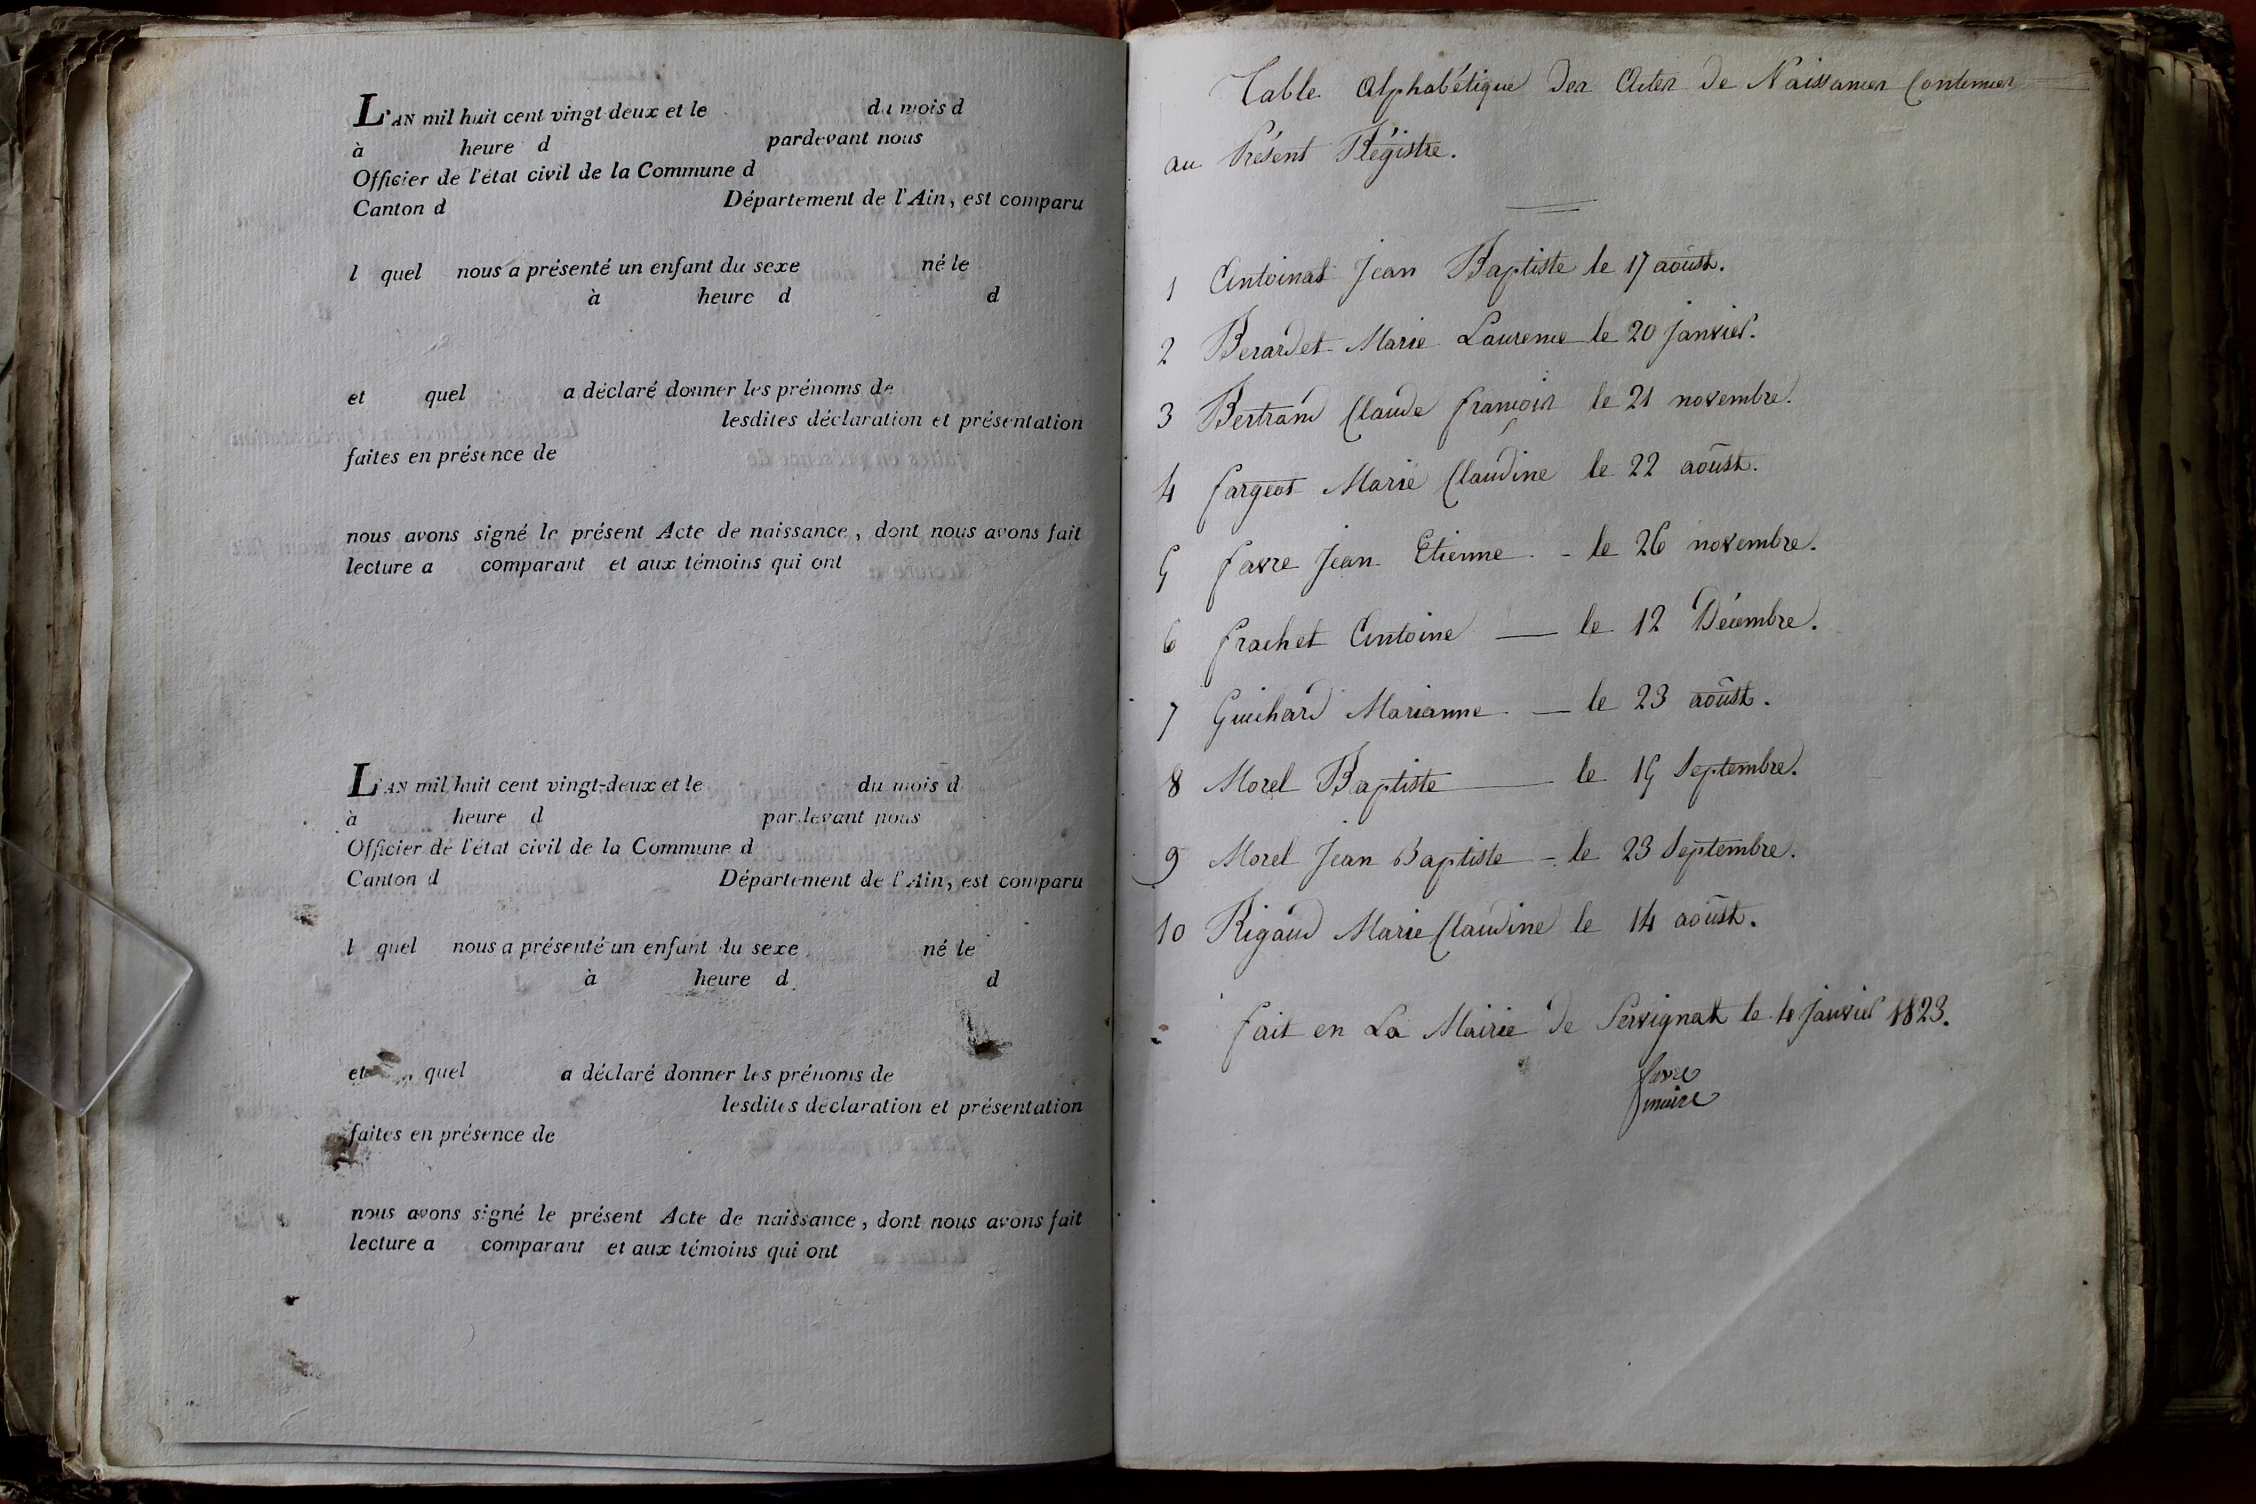 L'AN mil huit cent vingt-deux et le du mois d
à heure d pardevant nous
Officier de l'état civil de la Commune d
Canton d Département de l'Ain, est comparu
l quel nous a présenté un enfant du sexe né le
à heure d d
et quel a déclaré donner les prénoms de
lesdites déclaration et présentation
faites en présence de
nous avons signé le présent Acte de naissance, dont nous avons fait
lecture a comparant et aux témoins qui ont
L'AN mil huit cent vingt-deux et le du mois d
à heure d pardevant nous
Officier de l'état civil de la Commune d
Canton d Département de l'Ain, est comparu
l quel nous a présenté un enfant du sexe né le
à heure d d
et quel a déclaré donner les prénoms de
lesdites déclaration et présentation
faites en présence de
nous avons signé le présent Acte de naissance, dont nous avons fait
lecture a comparant et aux témoins qui ont
Table Alphabétique Des Actes de Naissances Contenues
au Présent Régistre.
1 Antoinat Jean Baptiste le 17 aoûst.
2 Berardet Marie Laurence le 20 janvier.
3 Bertrand Claude françois le 21 novembre.
4 fargeot Marie Claudine le 22 aoûst.
5 favre Jean Etienne - le 26 novembre.
6 frachet Antoine — le 12 Décembre.
7 Guichard Marianne — le 23 aoûst.
8 Morel Baptiste — le 15 Septembre.
9 Morel Jean Baptiste - le 23 Septembre.
10 Rigaud Marie Claudine le 14 aoûst.
fait en La Mairie de Servignat le 4 janvier 1823.
favre
maire